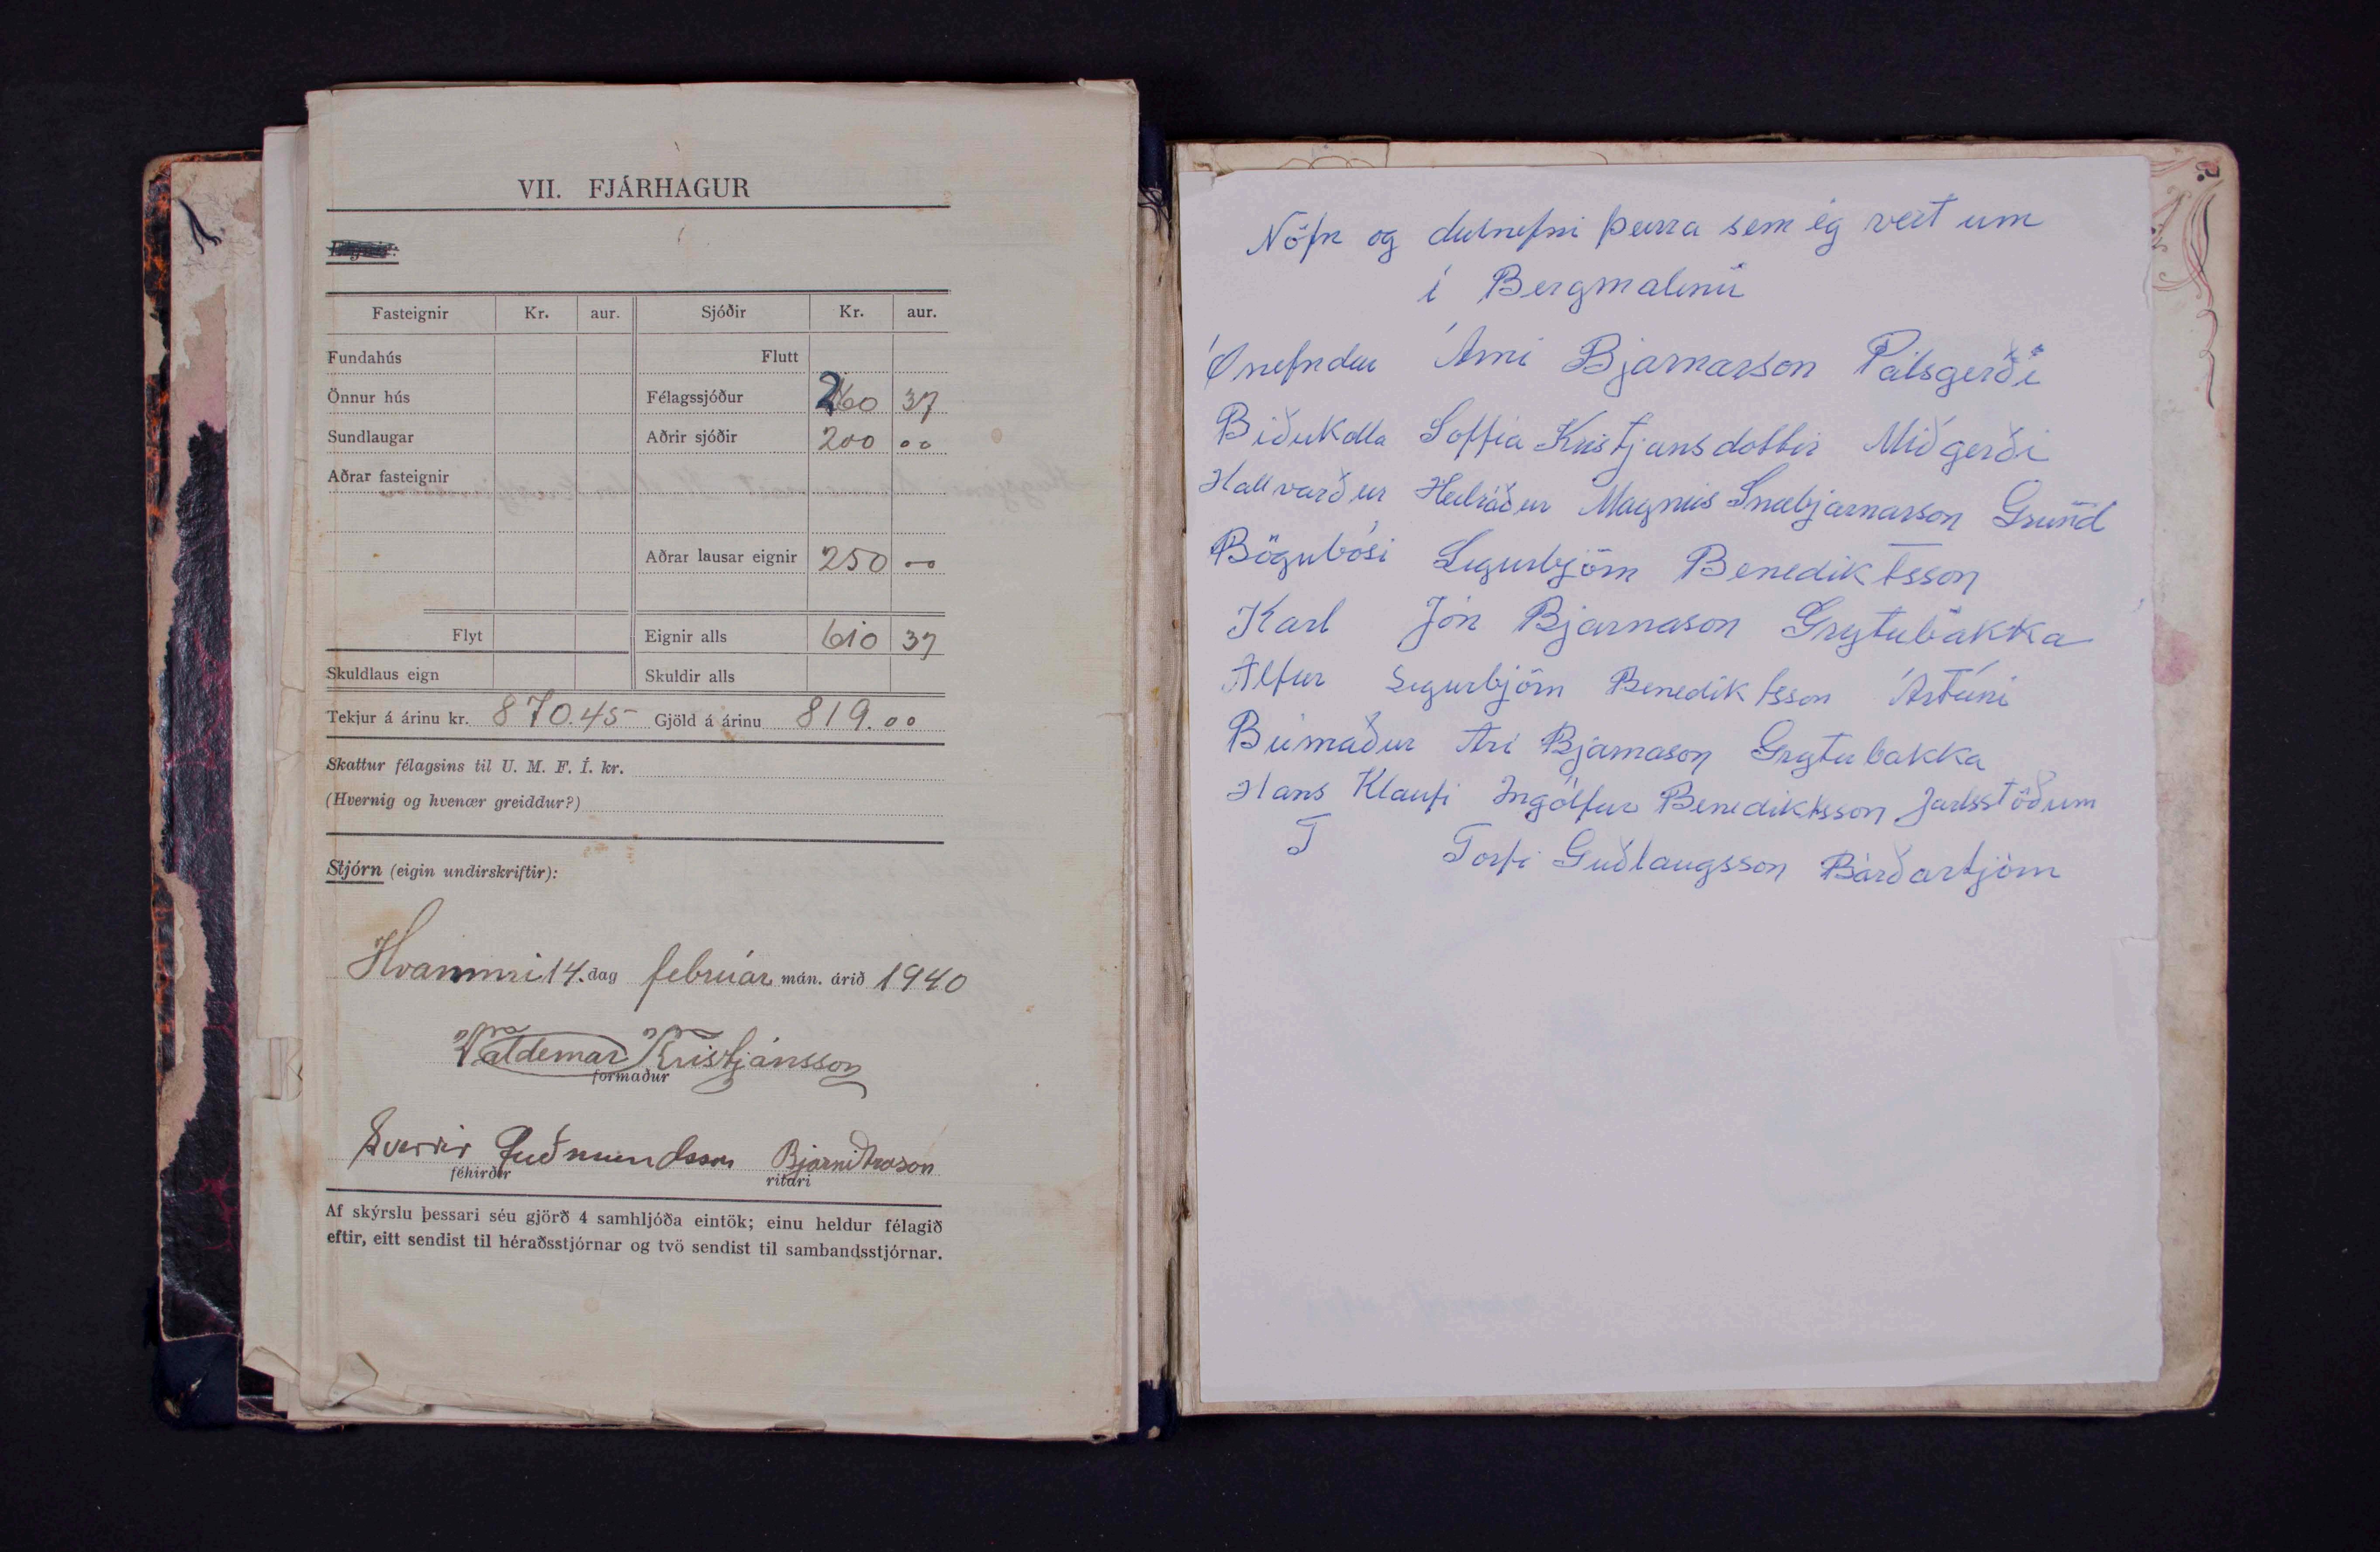 VII. FJÁRHAGUR
Fasteignir Kr. aur. Sjóðir Kr. aur.
Fundahús Flutt
Önnur hús Félagssjóður 260 37
Sundlaugar Aðrir sjóðir 200 00
Aðrar fasteignir
Aðrar lausar eignir 250 00
Flyt Eignir alls 610 37
Skuldlaus eign Skuldir alls
Tekjur á árinu kr. 870.45 Gjöld á árinu 819.00
Skattur félagsins til U. M. F. Í. kr.
(Hvernig og hvenær greiddur?)
Stjórn (eigin undirskriftir):
Hvammi 14. dag febrúar mán. árið 1940
Valdemar Kristjánsson
formaður
Sverrir Guðmundsson Bjarni Arason
féhirðir ritari
Af skýrslu þessari séu gjörð 4 samhljóða eintök; einu heldur félagið
eftir, eitt sendist til héraðsstjórnar og tvö sendist til sambandsstjórnar.
Nöfn og dulnefni þeirra sem ég veit um
í Bergmálinu
Ónefndur Árni Bjarnarson Pálsgerði
Biðukolla Soffia Kristjansdottir Miðgerði
Hallvarður Heilráður Magnús Snæbjarnarson Grund
Bögubósi Sigurbjörn Benediktsson
Karl Jón Bjarnason Grytubakka
Alfur Sigurbjörn Benediktsson Ártúni
Búmaður Ari Bjarnason Grytubakka
Hans Klaufi Ingólfur Benediktsson Jarlsstöðum
T Torfi Guðlaugsson Bárðartjörn